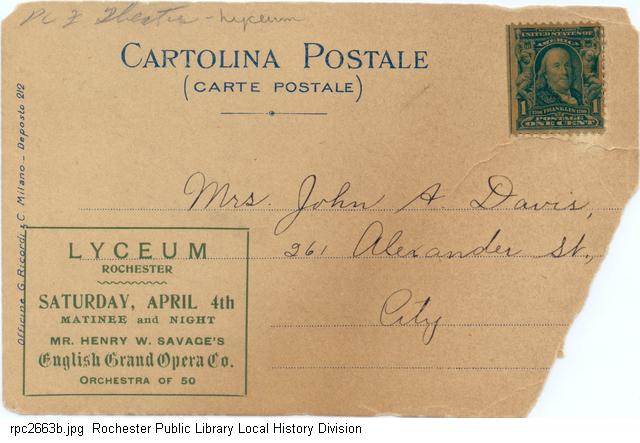 PC Z Theatre - Lyceum
CARTOLINA POSTALE
(CARTE POSTALE)
UNITED STATES OF
AMERICA
1 FRANKLIN 1
POSTAGE
ONE CENT
Mrs. John A. Davis,
261 Alexander St.,
City
Officine G. Ricordi & C. Milano - Deposto 212
LYCEUM
ROCHESTER
SATURDAY, APRIL 4th
MATINEE and NIGHT
MR. HENRY W. SAVAGE'S
English Grand Opera Co.
ORCHESTRA OF 50
rpc2663b.jpg Rochester Public Library Local History Division